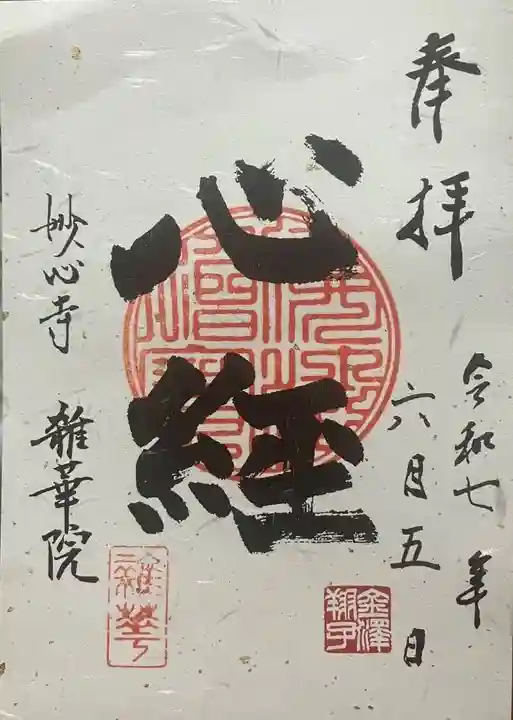 奉拝
令和七年
六月五日
心経
妙心寺 雑華院
金澤
翔子